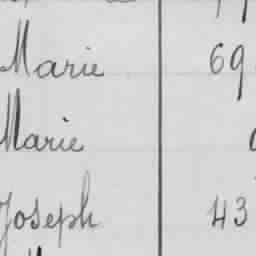 Marie 69
Marie
Joseph 43